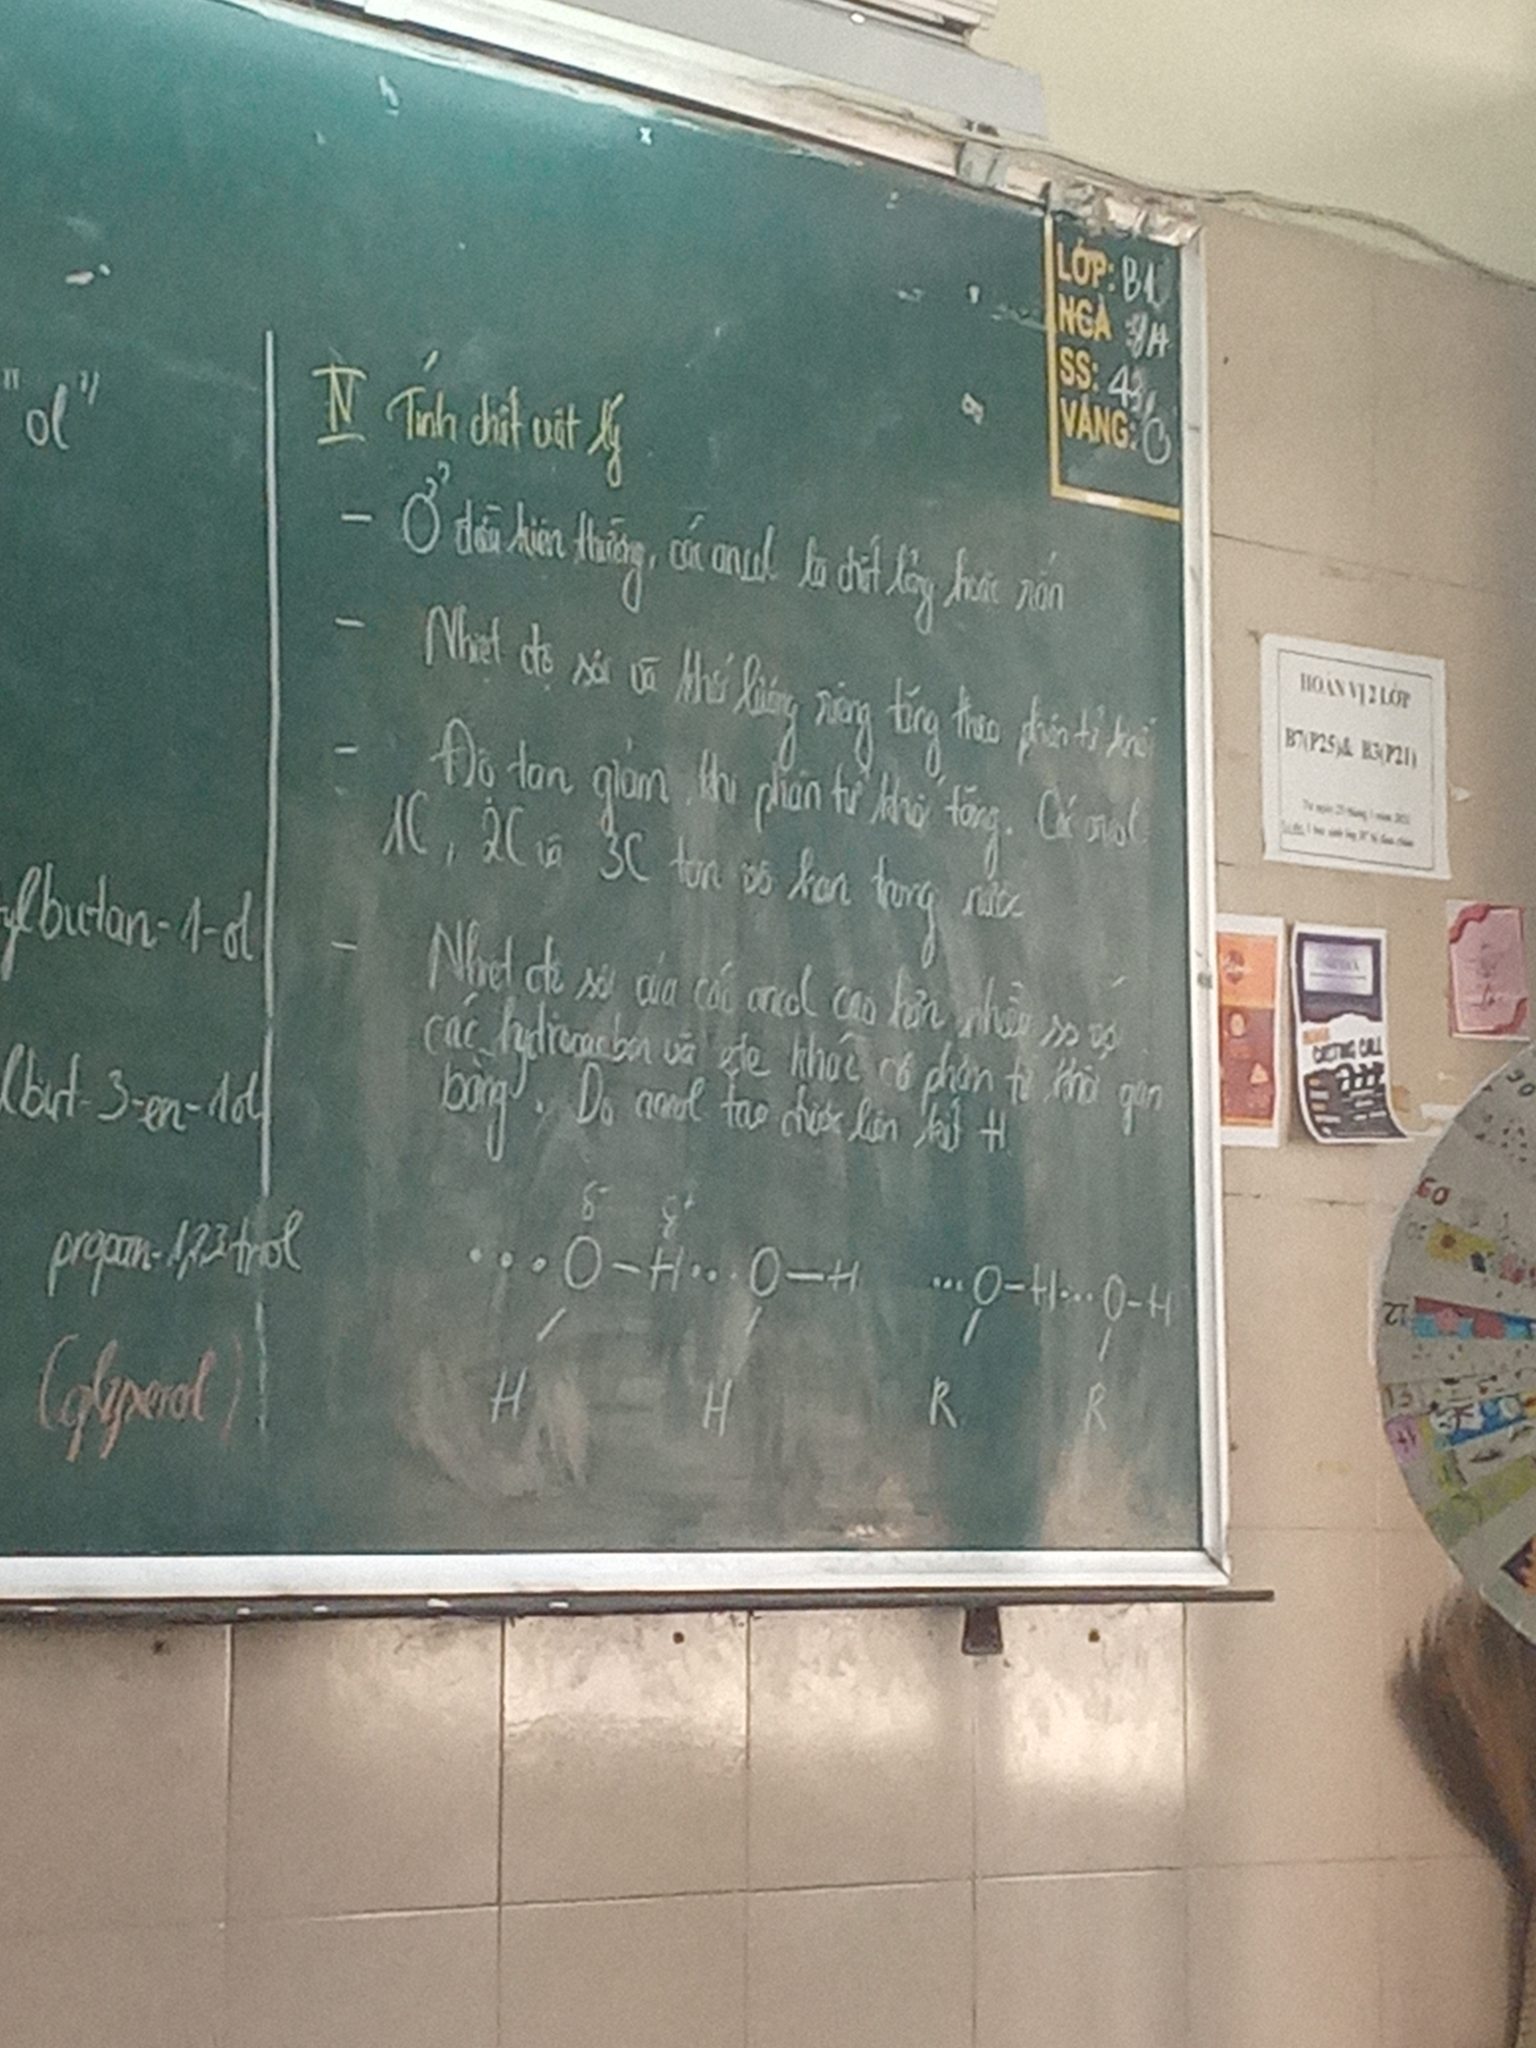 "ol"
ylbutan-1-ol
lbut-3-en-1ol
propan-1,2,3-triol
(glyxerol)
IV Tính chất vật lý
- Ở điều kiện thường, các ancol là chất lỏng hoặc rắn
- Nhiệt độ sôi và khối lượng riêng tăng theo phân tử khối
- Độ tan giảm khi phân tử khối tăng. Các ancol
1C, 2C và 3C tan vô hạn trong nước
- Nhiệt độ sôi của các ancol cao hơn nhiều ss với
các hydrocacbon và ete khác có phân tử khối gần
bằng. Do ancol tạo được liên kết H
δ- δ+
...O-H...O-H ...O-H...O-H
H H R R
LỚP: B1
NGÀ
SS: 43
VẮNG: 0
HOÁN VỊ 2 LỚP
B7(P25)& B3(P21)
CASTING CALL
60
12
13
14